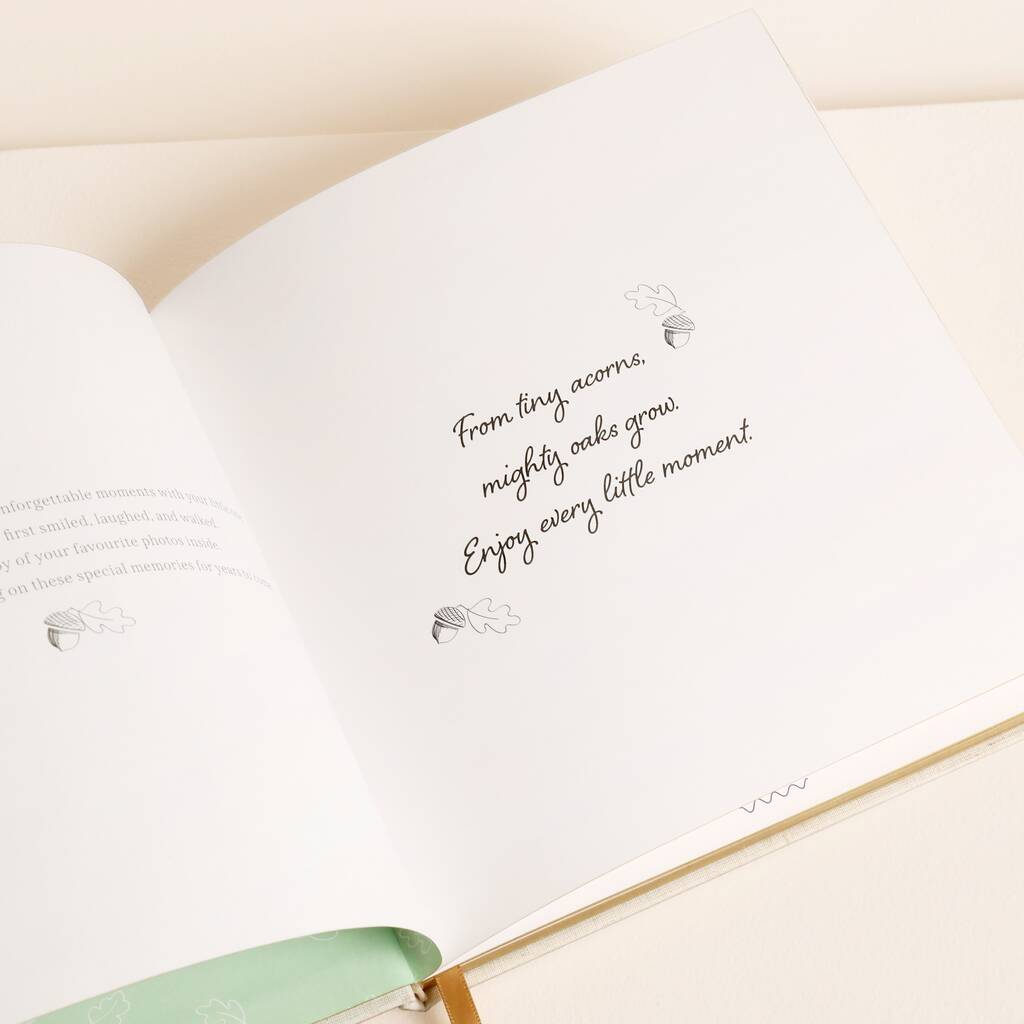 nforgettable moments with your little
first smiled, laughed, and walked.
y of your favourite photos inside.
g on these special memories for years to come
From tiny acorns,
mighty oaks grow.
Enjoy every little moment.